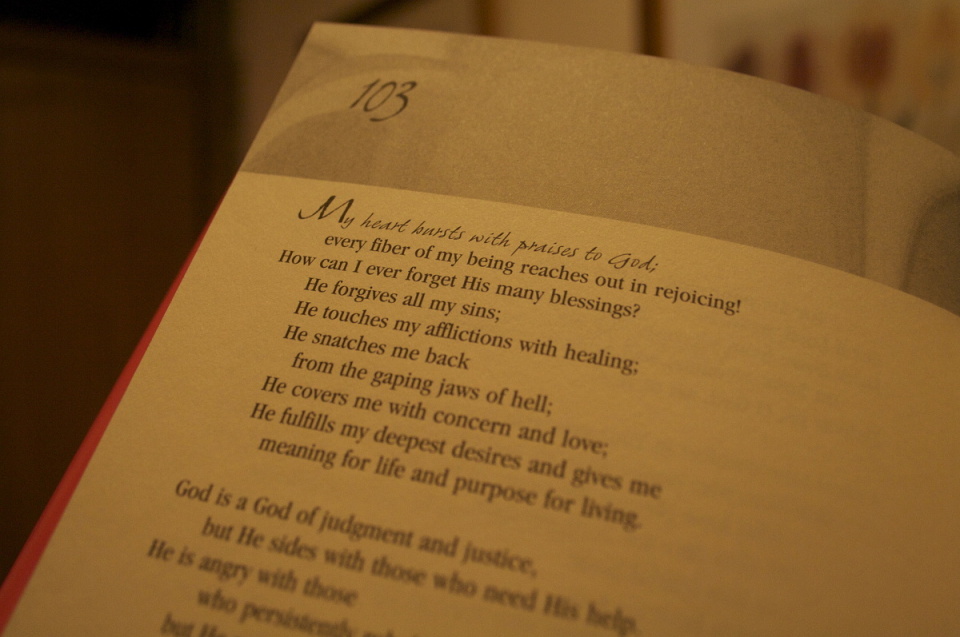 103
My heart bursts with praises to God;
every fiber of my being reaches out in rejoicing!
How can I ever forget His many blessings?
He forgives all my sins;
He touches my afflictions with healing;
He snatches me back
from the gaping jaws of hell;
He covers me with concern and love;
He fulfills my deepest desires and gives me
meaning for life and purpose for living.
God is a God of judgment and justice,
but He sides with those who need His help.
He is angry with those
who persistently
but He